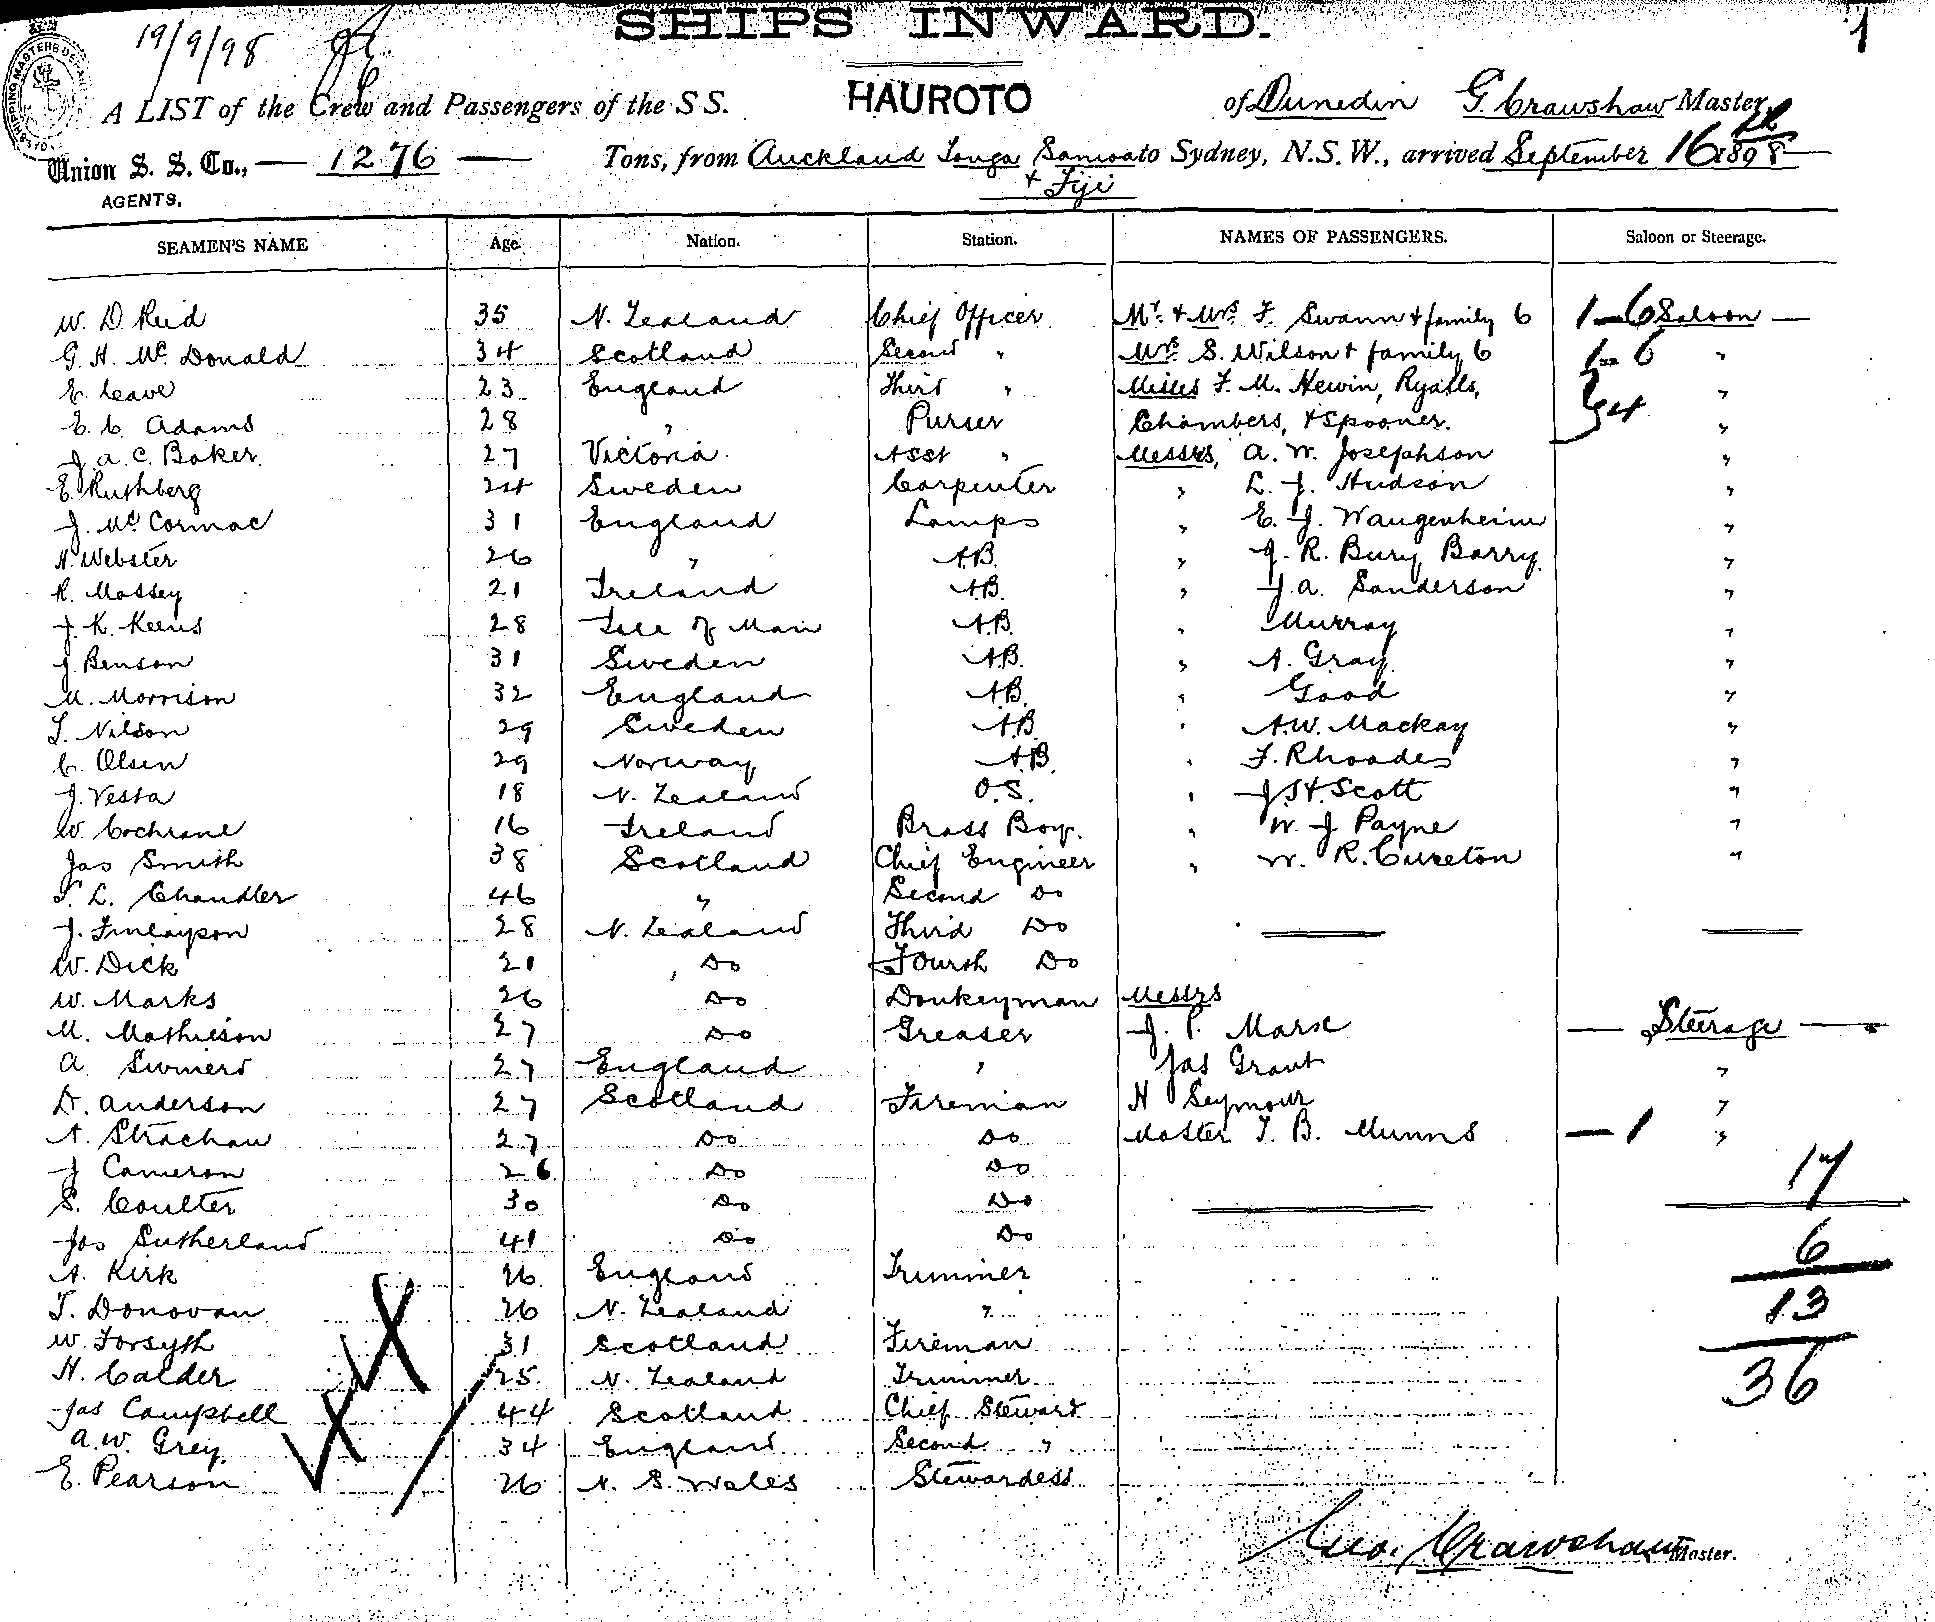 SHIPS INWARD.
1
19/9/98
A LIST of the Crew and Passengers of the S S. HAUROTO of Dunedin G Crawshaw Master,
Union S. S. Co., — 1276 — Tons, from Auckland Tonga Samoa to Sydney, N.S.W., arrived September 16 1898
+ Fiji
AGENTS.
SEAMEN'S NAME Age. Nation. Station. NAMES OF PASSENGERS. Saloon or Steerage.
W. D. Reid 35 N. Zealand Chief Officer Mr. & Mrs. F. Swann & family 6 1–6 Saloon —
G. H. Mc Donald 34 Scotland Second " Mrs. S. Wilson & family 6 1– 6 "
E. Leave 23 England Third " Misses F. M. Hewin, Ryalls, "
E. C. Adams 28 " Purser Chambers, & Spooner. 4 "
J. A. C. Baker. 27 Victoria Asst " Messrs, A. W. Josephson "
E. Ruthberg 24 Sweden Carpenter " L. J. Hudson "
J. Mc Cormac 31 England Lamps " E. J. Waugenheim "
H. Webster 26 " A.B. " J. R. Bury Barry "
R. Massey 21 Ireland A.B. " J. A. Sanderson "
J. K. Keens 28 Isle of Man A.B. " Murray "
J. Benson 31 Sweden A.B. " A. Gray "
M. Morrison 32 England A.B. " Good "
T. Nilson 29 Sweden A.B. " A.W. Mackay "
C. Olsen 29 Norway A.B. " F. Rhoades "
J. Vesta 18 N. Zealand O.S. " J. H. Scott "
W. Cochrane 16 Ireland Brass Boy. " W. J. Payne "
Jas Smith 38 Scotland Chief Engineer " W. R. Cureton "
T. L. Chandler 46 " Second Do
J. Finlayson 28 N. Zealand Third Do
W. Dick 21 " Do Fourth Do
W. Marks 26 Do Donkeyman Messrs
M. Mathieson 27 Do Greaser J. P. Marx — Steerage —
A. Swiners 27 England " Jas Grant "
D. Anderson 27 Scotland Fireman H Seymour "
A. Strachan 27 Do Do Master T. B. Munns — 1 "
J Cameron 26 Do Do 17
S. Coulter 30 Do Do
Jas Sutherland 41 Do Do 6
A. Kirk 26 England Trimmer
T. Donovan 26 N. Zealand " 13
W. Forsyth 31 Scotland Fireman
H. Calder 25 N. Zealand Trimmer 36
Jas Campbell 44 Scotland Chief Steward
A. W. Grey. 34 England Second "
E. Pearson 26 N. S. Wales Stewardess
Geo. Crawshaw Master.